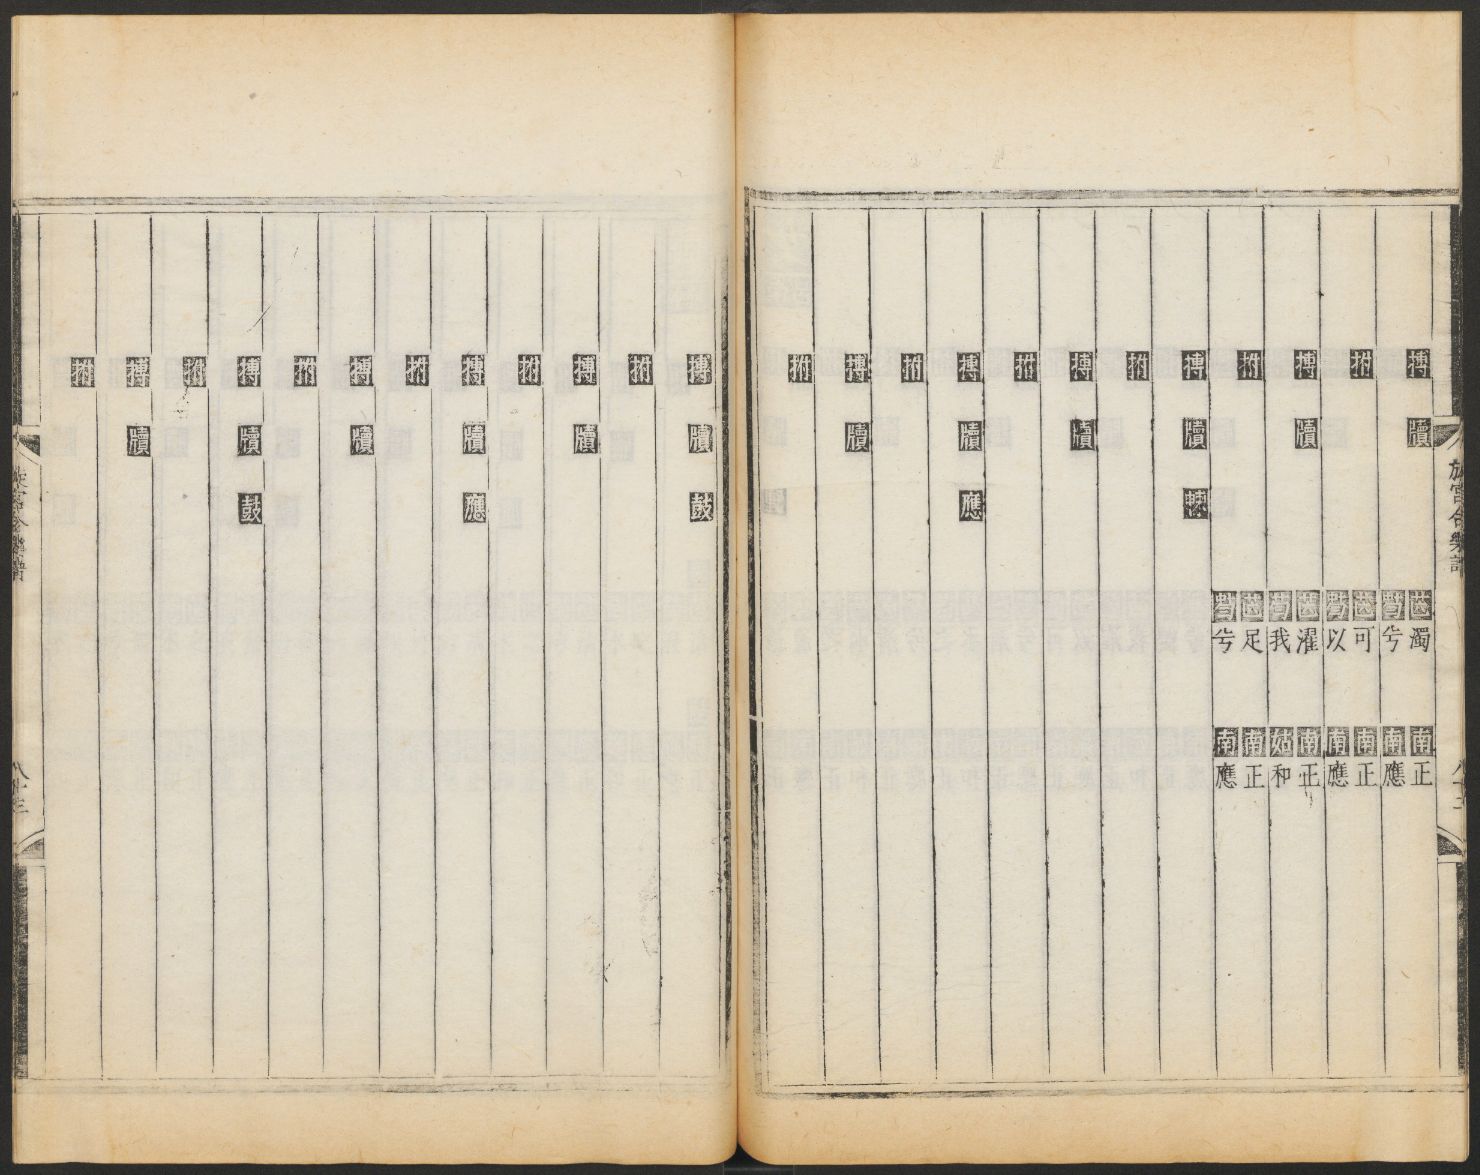 旋宮合樂譜 八十三
搏 牘 濁 南 正
兮 南 應
拊 可 南 正
以 南 應
搏 牘 濯 南 正
我 姑 和
拊 足 南 正
兮 南 應
搏 牘 朄
拊
搏 牘
拊
搏 牘 應
拊
搏 牘
拊
搏 牘 鼓
拊
搏 牘
拊
搏 牘 應
拊
搏 牘
拊
搏 牘 鼓
拊
搏 牘
拊
旋宮合樂譜 八十三